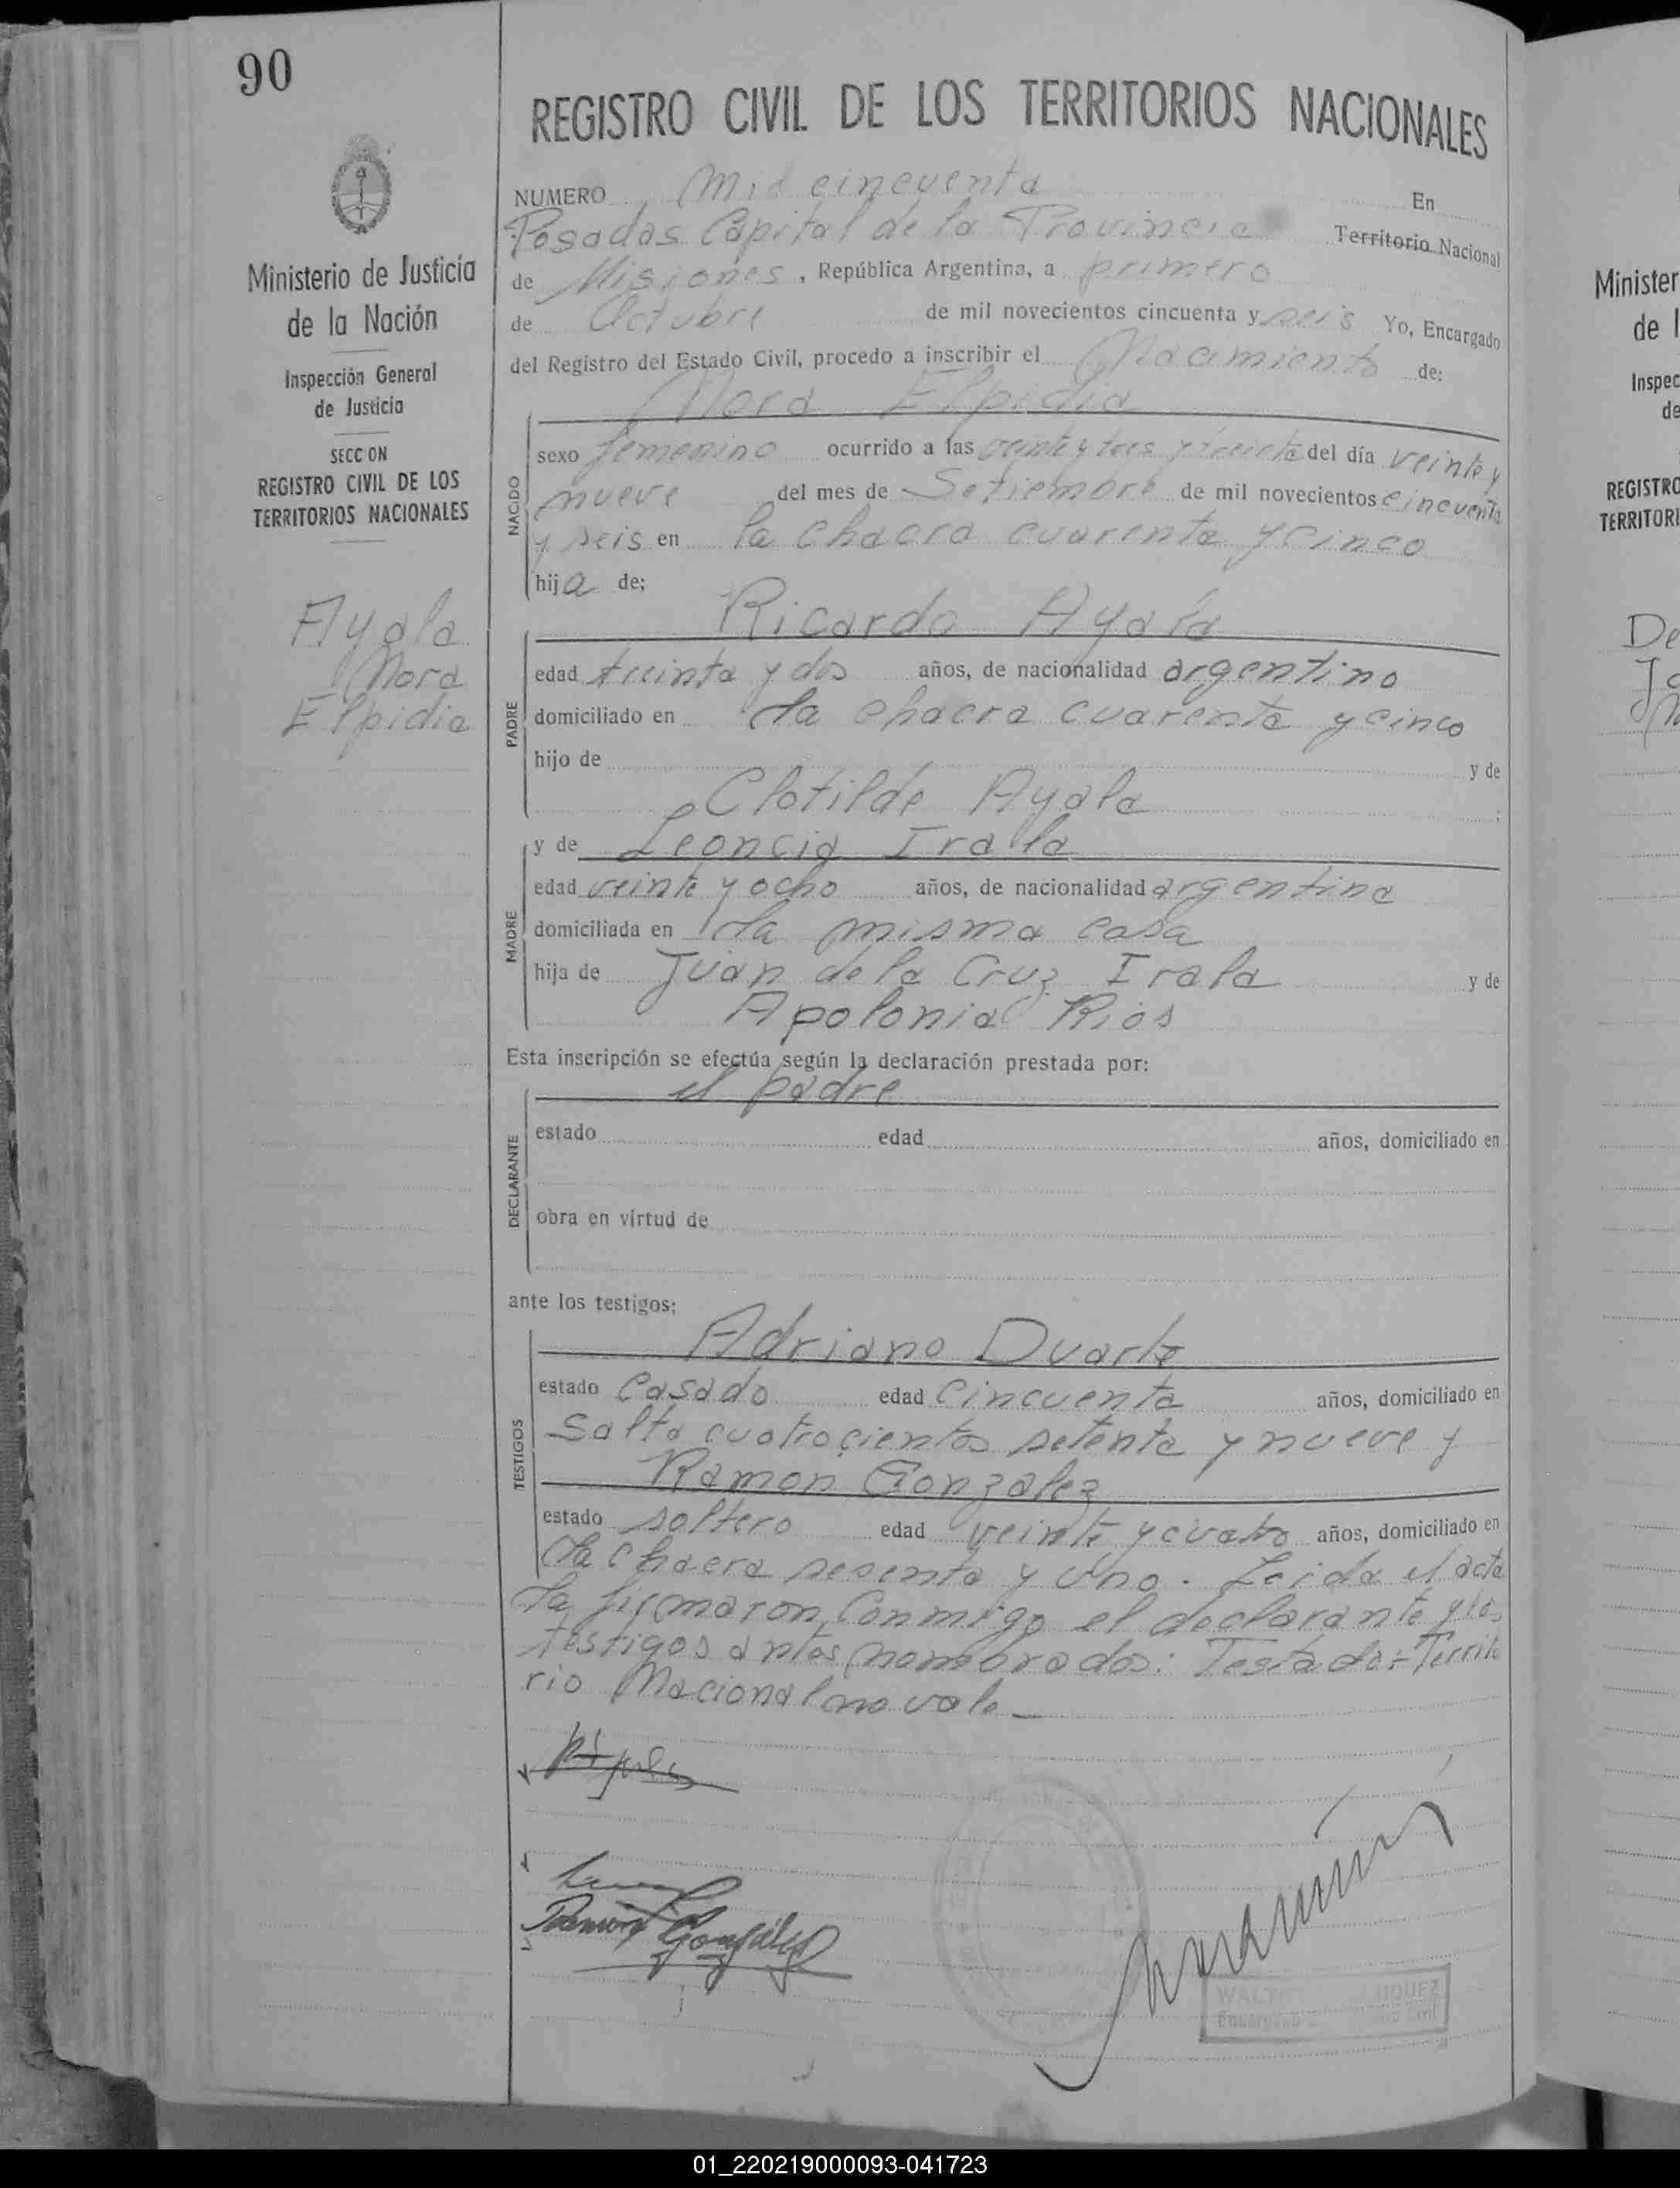 90
REGISTRO CIVIL DE LOS TERRITORIOS NACIONALES
Ministerio de Justicia
de la Nación
Inspección General
de Justicia
SECCION
REGISTRO CIVIL DE LOS
TERRITORIOS NACIONALES
Ayala
Nora
Elpidia
NUMERO Mil cincuenta En
Posadas Capital de la Provincia Territorio Nacional
de Misiones, República Argentina, a primero
de Octubre de mil novecientos cincuenta y seis Yo, Encargado
del Registro del Estado Civil, procedo a inscribir el Nacimiento de:
Nora Elpidia
NACIDO
sexo femenino ocurrido a las veinte y tres y treinta del día veinte y
nueve del mes de Setiembre de mil novecientos cincuenta
y seis en la chacra cuarenta y cinco
hija de;
Ricardo Ayala
PADRE
edad treinta y dos años, de nacionalidad argentino
domiciliado en la chacra cuarenta y cinco
hijo de y de
Clotilde Ayala ;
y de Leoncia Irala
MADRE
edad veinte y ocho años, de nacionalidad argentina
domiciliada en la misma casa
hija de Juan de la Cruz Irala y de
Apolonia Rios
Esta inscripción se efectúa según la declaración prestada por:
el padre
DECLARANTE
estado edad años, domiciliado en
obra en virtud de
ante los testigos:
Adriano Duarte
TESTIGOS
estado casado edad cincuenta años, domiciliado en
Salta cuatrocientos setenta y nueve y
Ramon Gonzalez
estado soltero edad veinte y cuatro años, domiciliado en
la chacra sesenta y uno. Leida el acta
la firmaron conmigo el declarante y los
testigos antes nombrados: Testado: Territo
rio Nacional no vale
Ramon González
WALT IQUEZ
Encargado Civil
Minister
de l
Inspec
de
REGISTRO
TERRITORI
De
01_220219000093-041723